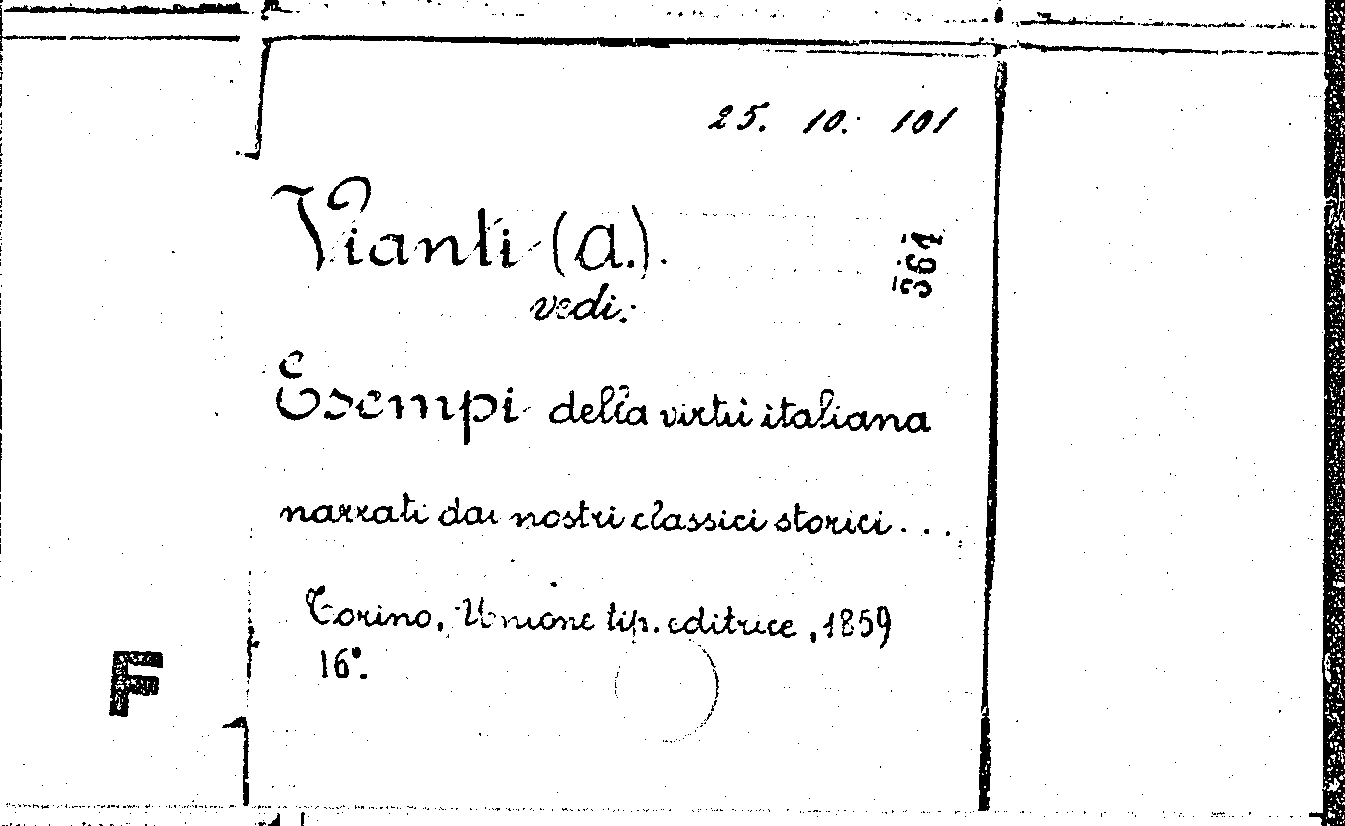 25. 10. 101
Vianti (A.).
361
vedi:
Esempi della virtù italiana
narrati dai nostri classici storici...
Torino, Unione tip. editrice, 1859
16°.
F